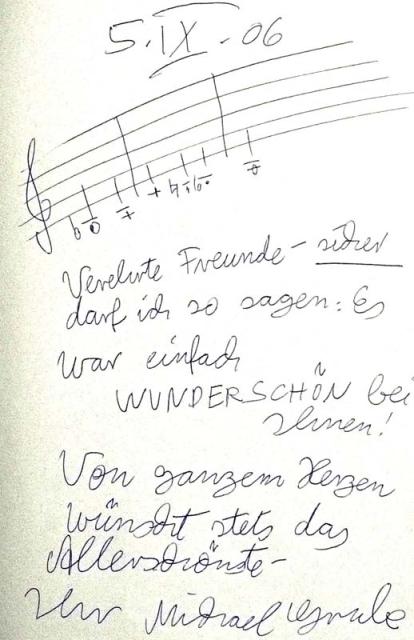 5.IX.06
Verehrte Freunde – sicher
darf ich so sagen: Es
war einfach
WUNDERSCHÖN bei
Ihnen!
Von ganzem Herzen
wünscht stets das
Allerschönste –
Ihr Michael